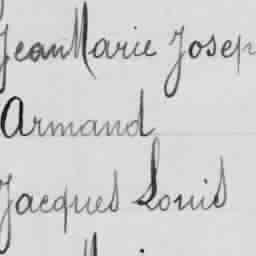 Jean Marie Josep
Armand
Jacques Louis